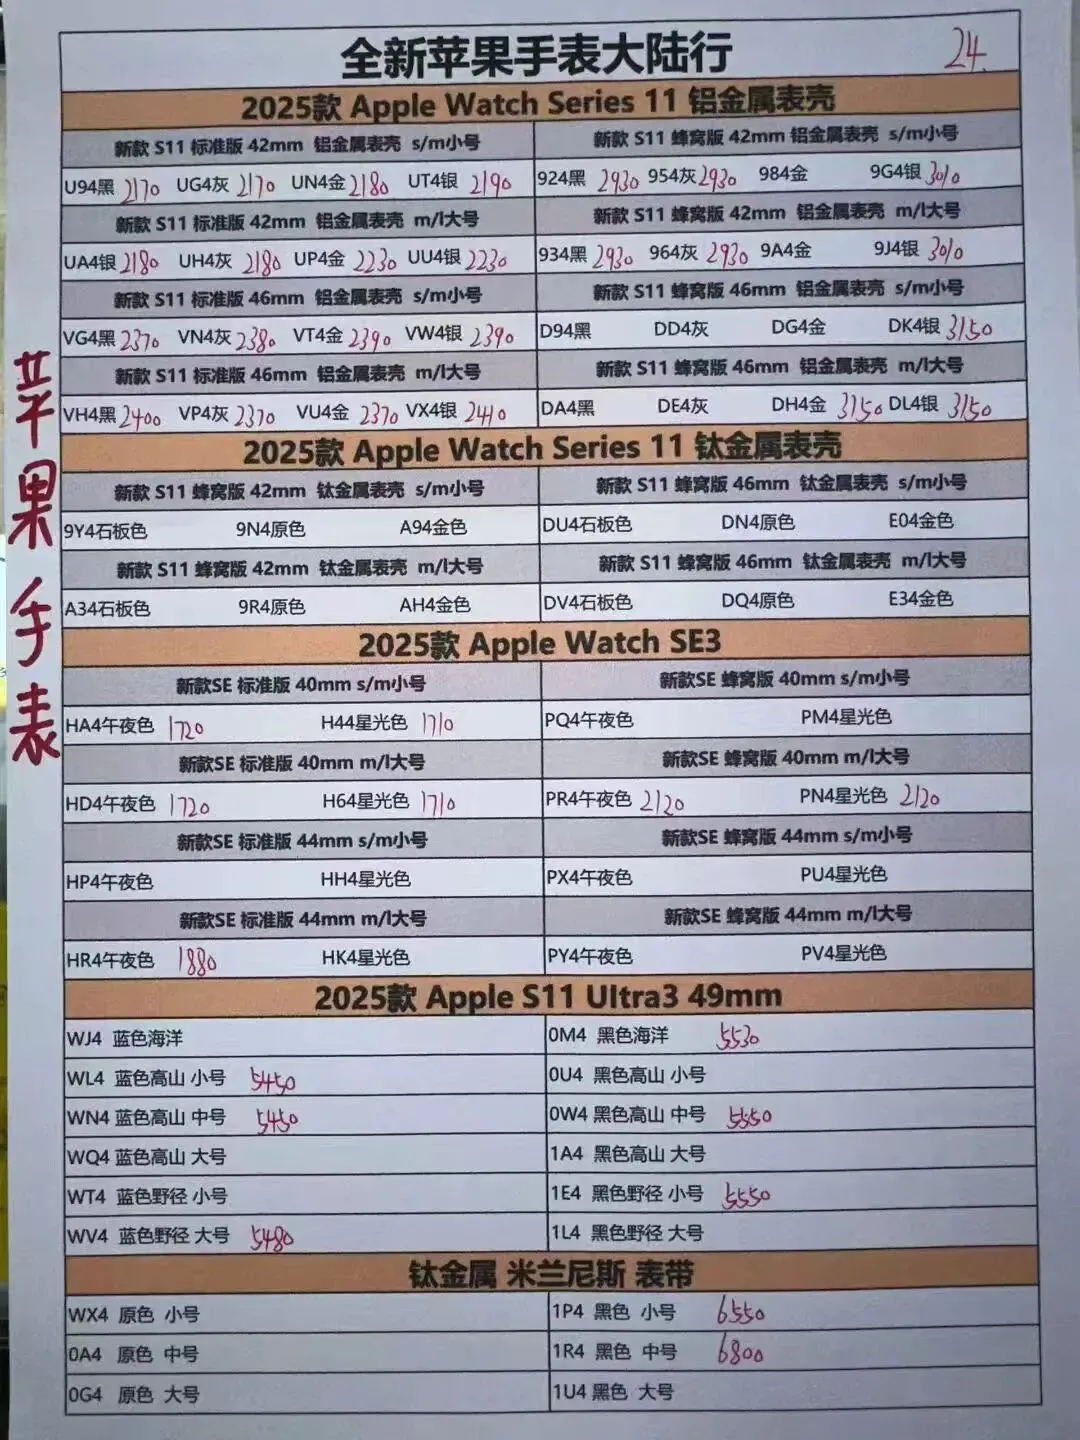 全新苹果手表大陆行 24.
2025款 Apple Watch Series 11 铝金属表壳
新款 S11 标准版 42mm 铝金属表壳 s/m小号 新款 S11 蜂窝版 42mm 铝金属表壳 s/m小号
U94黑 2170 UG4灰 2170 UN4金 2180 UT4银 2190 924黑 2930 954灰 2930 984金 9G4银 3010
新款 S11 标准版 42mm 铝金属表壳 m/l大号 新款 S11 蜂窝版 42mm 铝金属表壳 m/l大号
UA4银 2180 UH4灰 2180 UP4金 2230 UU4银 2230 934黑 2930 964灰 2930 9A4金 9J4银 3010
新款 S11 标准版 46mm 铝金属表壳 s/m小号 新款 S11 蜂窝版 46mm 铝金属表壳 s/m小号
VG4黑 2370 VN4灰 2380 VT4金 2390 VW4银 2390 D94黑 DD4灰 DG4金 DK4银 3150
新款 S11 标准版 46mm 铝金属表壳 m/l大号 新款 S11 蜂窝版 46mm 铝金属表壳 m/l大号
VH4黑 2400 VP4灰 2370 VU4金 2370 VX4银 2410 DA4黑 DE4灰 DH4金 3150 DL4银 3150
2025款 Apple Watch Series 11 钛金属表壳
新款 S11 蜂窝版 42mm 钛金属表壳 s/m小号 新款 S11 蜂窝版 46mm 钛金属表壳 s/m小号
9Y4石板色 9N4原色 A94金色 DU4石板色 DN4原色 E04金色
新款 S11 蜂窝版 42mm 钛金属表壳 m/l大号 新款 S11 蜂窝版 46mm 钛金属表壳 m/l大号
A34石板色 9R4原色 AH4金色 DV4石板色 DQ4原色 E34金色
2025款 Apple Watch SE3
新款SE 标准版 40mm s/m小号 新款SE 蜂窝版 40mm s/m小号
HA4午夜色 1720 H44星光色 1710 PQ4午夜色 PM4星光色
新款SE 标准版 40mm m/l大号 新款SE 蜂窝版 40mm m/l大号
HD4午夜色 1720 H64星光色 1710 PR4午夜色 2120 PN4星光色 2120
新款SE 标准版 44mm s/m小号 新款SE 蜂窝版 44mm s/m小号
HP4午夜色 HH4星光色 PX4午夜色 PU4星光色
新款SE 标准版 44mm m/l大号 新款SE 蜂窝版 44mm m/l大号
HR4午夜色 1880 HK4星光色 PY4午夜色 PV4星光色
2025款 Apple S11 Ultra3 49mm
WJ4 蓝色海洋 0M4 黑色海洋 5530
WL4 蓝色高山 小号 5450 0U4 黑色高山 小号
WN4 蓝色高山 中号 5450 0W4 黑色高山 中号 5550
WQ4 蓝色高山 大号 1A4 黑色高山 大号
WT4 蓝色野径 小号 1E4 黑色野径 小号 5550
WV4 蓝色野径 大号 5480 1L4 黑色野径 大号
钛金属 米兰尼斯 表带
WX4 原色 小号 1P4 黑色 小号 6550
0A4 原色 中号 1R4 黑色 中号 6800
0G4 原色 大号 1U4 黑色 大号
苹果手表